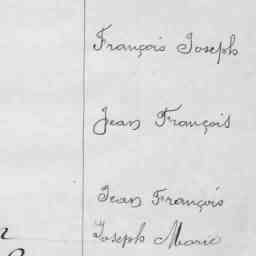 François Joseph
Jean François
Jean François
Joseph Marie